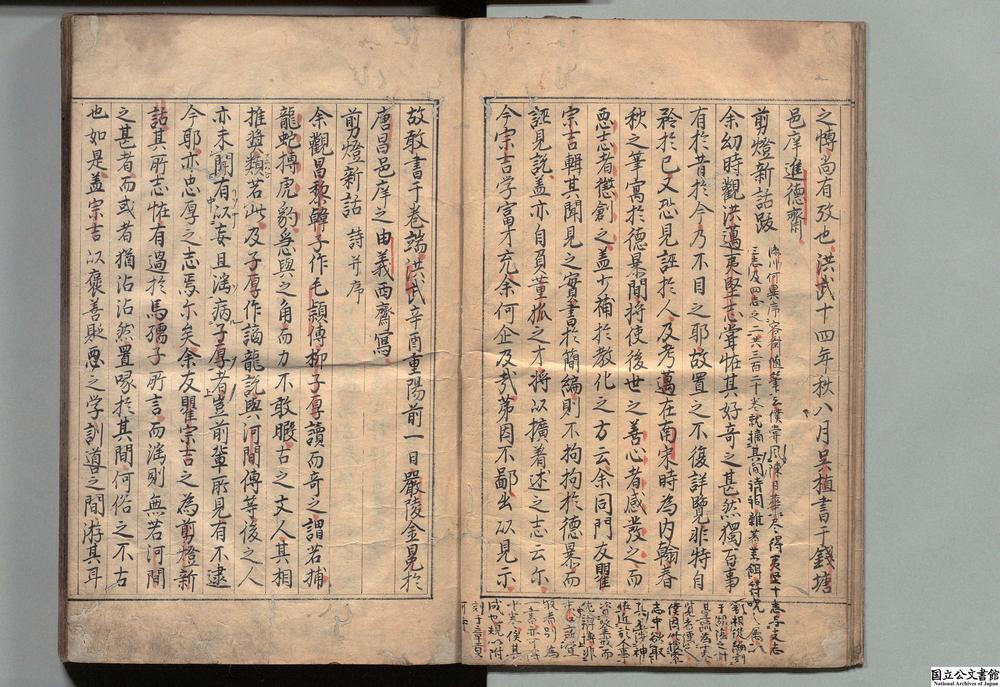 之博尚有攷也洪武十四年秋八月吴植書于錢塘
邑庠進德齋
剪燈新話跋
余幼時觀洪邁夷堅志嘗恠其好奇之甚然獨百事
有於昔於今乃不目之耶故置之不復詳覽非特自
矜於已又恐見誣於人及考邁在南宋時為内翰春
秋之筆寓於德暴間将使後世之善心者感發之而
悪志者懲創之盖少補於教化之方云余同門友瞿
宗吉輯其聞見之實書於簡編則不拘拘於德暴而
誣見説盖亦自負董狐之才将以擴着述之志云尓
今宗吉学富才充余何企及哉苐因不鄙出以見示
故敢書于巻端洪武辛酉重陽前一日嚴陵金冕於
唐昌邑庠之由義西齋寫
剪燈新話 詩并序
余觀昌黎韓子作毛頴傳柳子厚讀而奇之謂若捕
龍蛇搏虎豹急與之角而力不敢暇古之文人其相
推奨類若此及子厚作謫龍説與河間傳等後之人
亦未聞有以妄且滛病子厚者豈前輩所見有不逮
今耶亦忠厚之志焉尓矣余友瞿宗吉之為剪燈新
話其所志恠有過於馬孺子所言而滛則無若河間
之甚者而或者猶沾沾然置喙於其間何俗之不古
也如是盖宗吉以褒善貶悪之学訓導之間游其耳
国立公文書館
National Archives of Japan